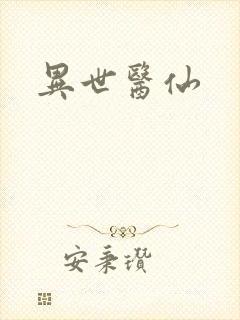 異世醫仙
安秉瓚